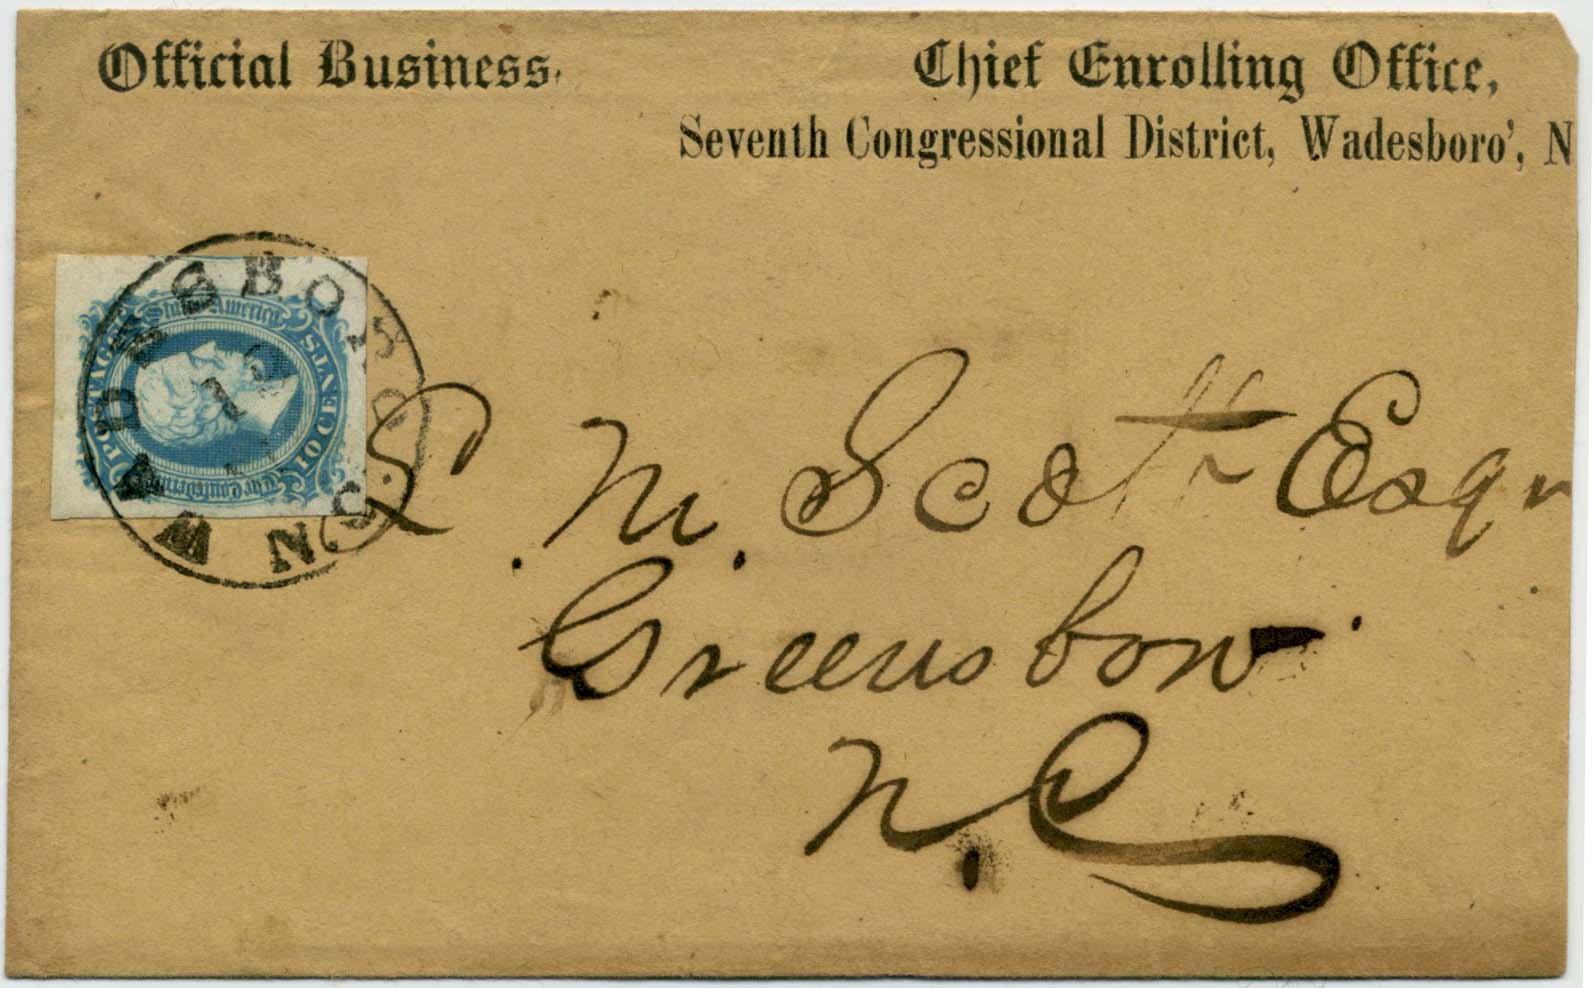 Official Business.
Chief Enrolling Office,
Seventh Congressional District, Wadesboro', N
WADESBORO' N.C.
12
The Confederate States America
POSTAGE
10 CENTS
L. M. Scott Esqr
Greensboro
N.C